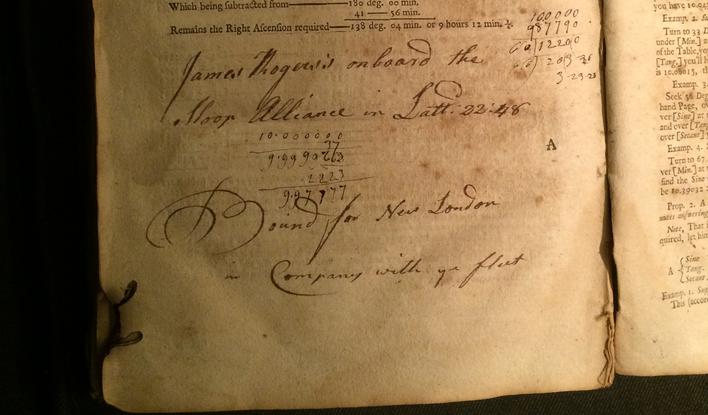 Which being subtracted from——180 deg. 00 min.
41 — 56 min.
Remains the Right Ascension required—138 deg. 04 min. or 9 hours 12 min. ¼
100000
987790
12200
203
3-23
James Rogers's onboard the
Sloop Alliance in Latt. 22:48
10.000000
2223
9.97777
Bound for New London
in Company with ye fleet
A
Examp. 2.
Turn to 33 D
under [Min.] a
of the Table, yo
[Tang.] you'll
is 10.08015, th
Examp. 3.
Seek 56 Deg
hand Page, ov
ver [Sine] at
and over [Tang
over [Secant]
Examp. 4.
Turn to 67
ver [Min.] at
find the Sine
be 10.39032
Prop. 2. A
notes answering
Note, That i
quired, let hi
A { Sine
Tang.
Secant
Examp. 1. Sup
This (accor